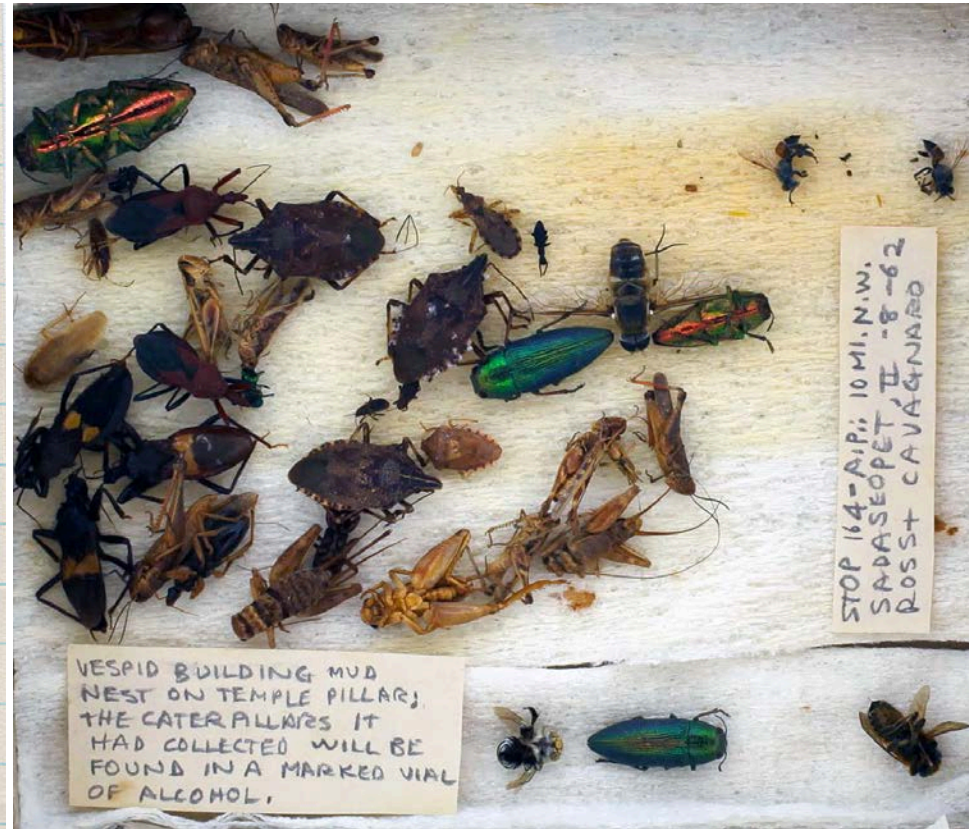 STOP 164-A.P.; 10 MI. N.W.
SADASEOPET, II -8-62
ROSS + CAVAGNARO
VESPID BUILDING MUD
NEST ON TEMPLE PILLAR;
THE CATERPILLARS IT
HAD COLLECTED WILL BE
FOUND IN A MARKED VIAL
OF ALCOHOL.